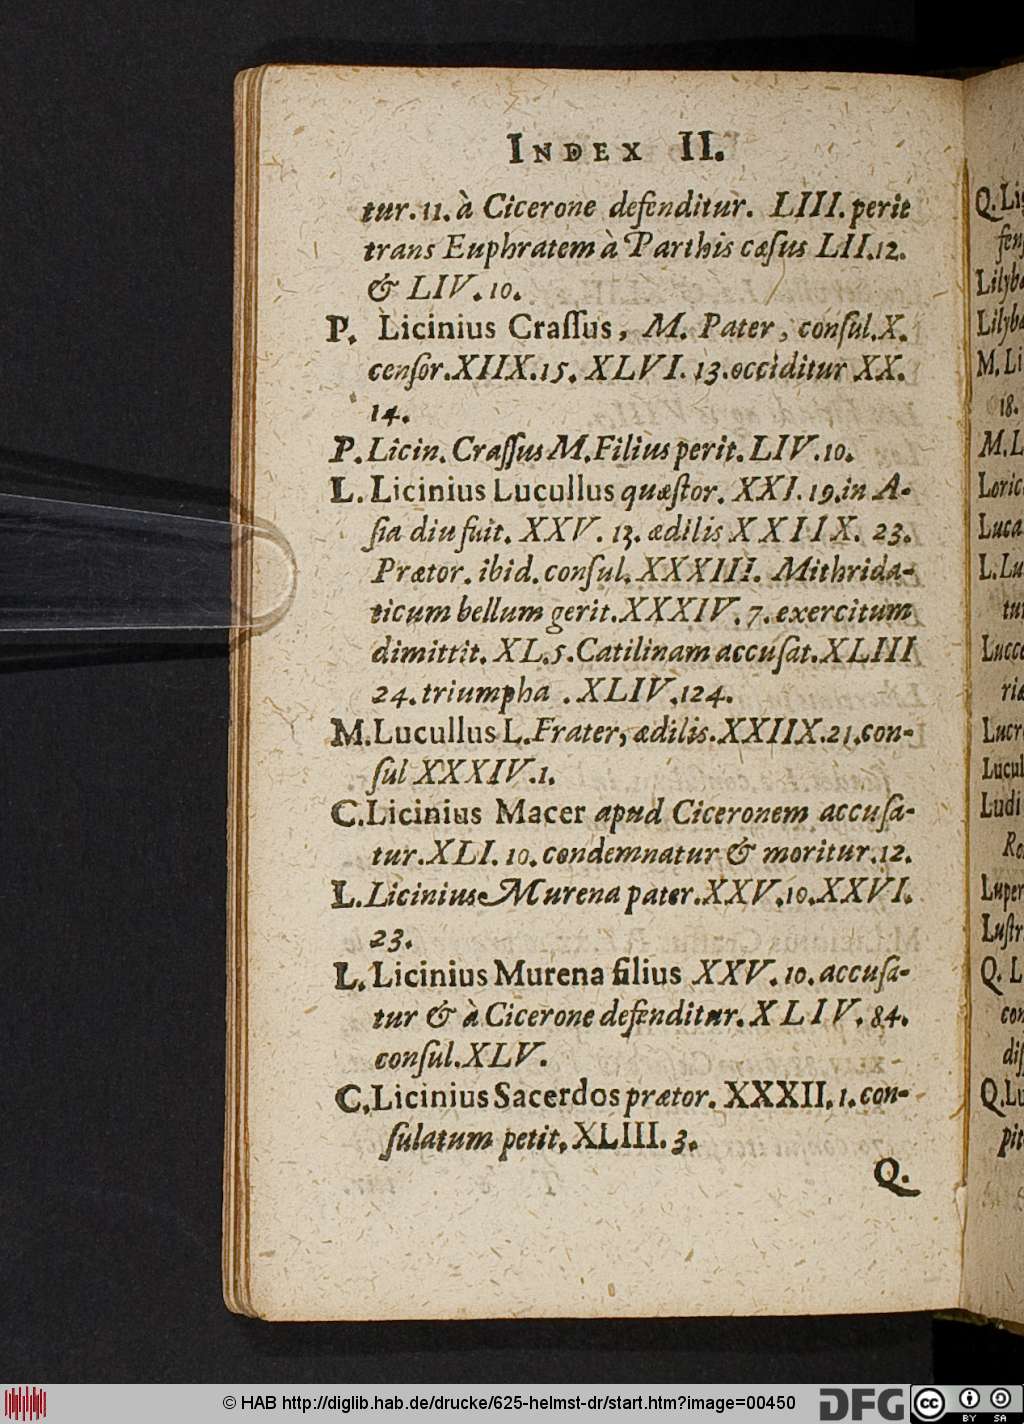 INDEX II.
tur. 11. à Cicerone defenditur. LIII. perit
trans Euphratem à Parthis cæsus LII.12.
& LIV. 10.
P. Licinius Craſſus, M. Pater, conſul. X.
cenſor. XIIX. 15. XLVI. 13. occiditur XX.
14.
P. Licin. Craſſus M. Filius perit. LIV. 10.
L. Licinius Lucullus quæſtor. XXI. 19. in A-
ſia diu fuit. XXV. 13. ædilis XXIIX. 23.
Prætor. ibid. conſul. XXXIII. Mithrida-
ticum bellum gerit. XXXIV. 7. exercitum
dimittit. XL. 5. Catilinam accuſat. XLIII
24. triumpha . XLIV. 124.
M. Lucullus L. Frater, ædilis. XXIIX. 21. con-
ſul XXXIV. 1.
C. Licinius Macer apud Ciceronem accuſa-
tur. XLI. 10. condemnatur & moritur. 12.
L. Licinius Murena pater. XXV. 10. XXVI.
23.
L. Licinius Murena filius XXV. 10. accuſa-
tur & à Cicerone defenditur. XLIV. 84.
conſul. XLV.
C. Licinius Sacerdos prætor. XXXII. 1. con-
ſulatum petit. XLIII. 3.
Q.
Q. Lig
Lilyb
Lilyb
M. Li
18.
M. L
Loric
Luca
L. Lu
tur
Lucce
riæ
Lucr
Lucul
Ludi
Ro
Luper
Luſtr
Q. L
con
diſ
Q. Lu
pit
© HAB http://diglib.hab.de/drucke/625-helmst-dr/start.htm?image=00450
DFG
cc
BY SA